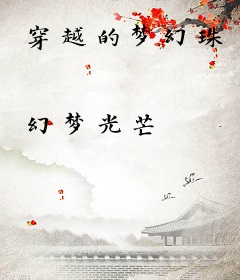 穿越的梦幻珠
幻梦光芒